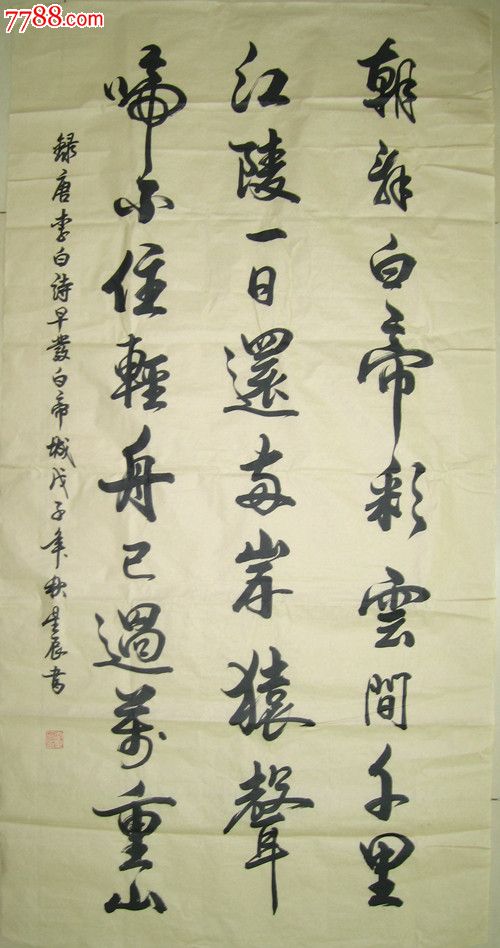 7788.com
朝辞白帝彩雲間千里
江陵一日還两岸猿聲
啼不住輕舟已過萬重山
録唐李白詩早發白帝城戊子年秋星辰書